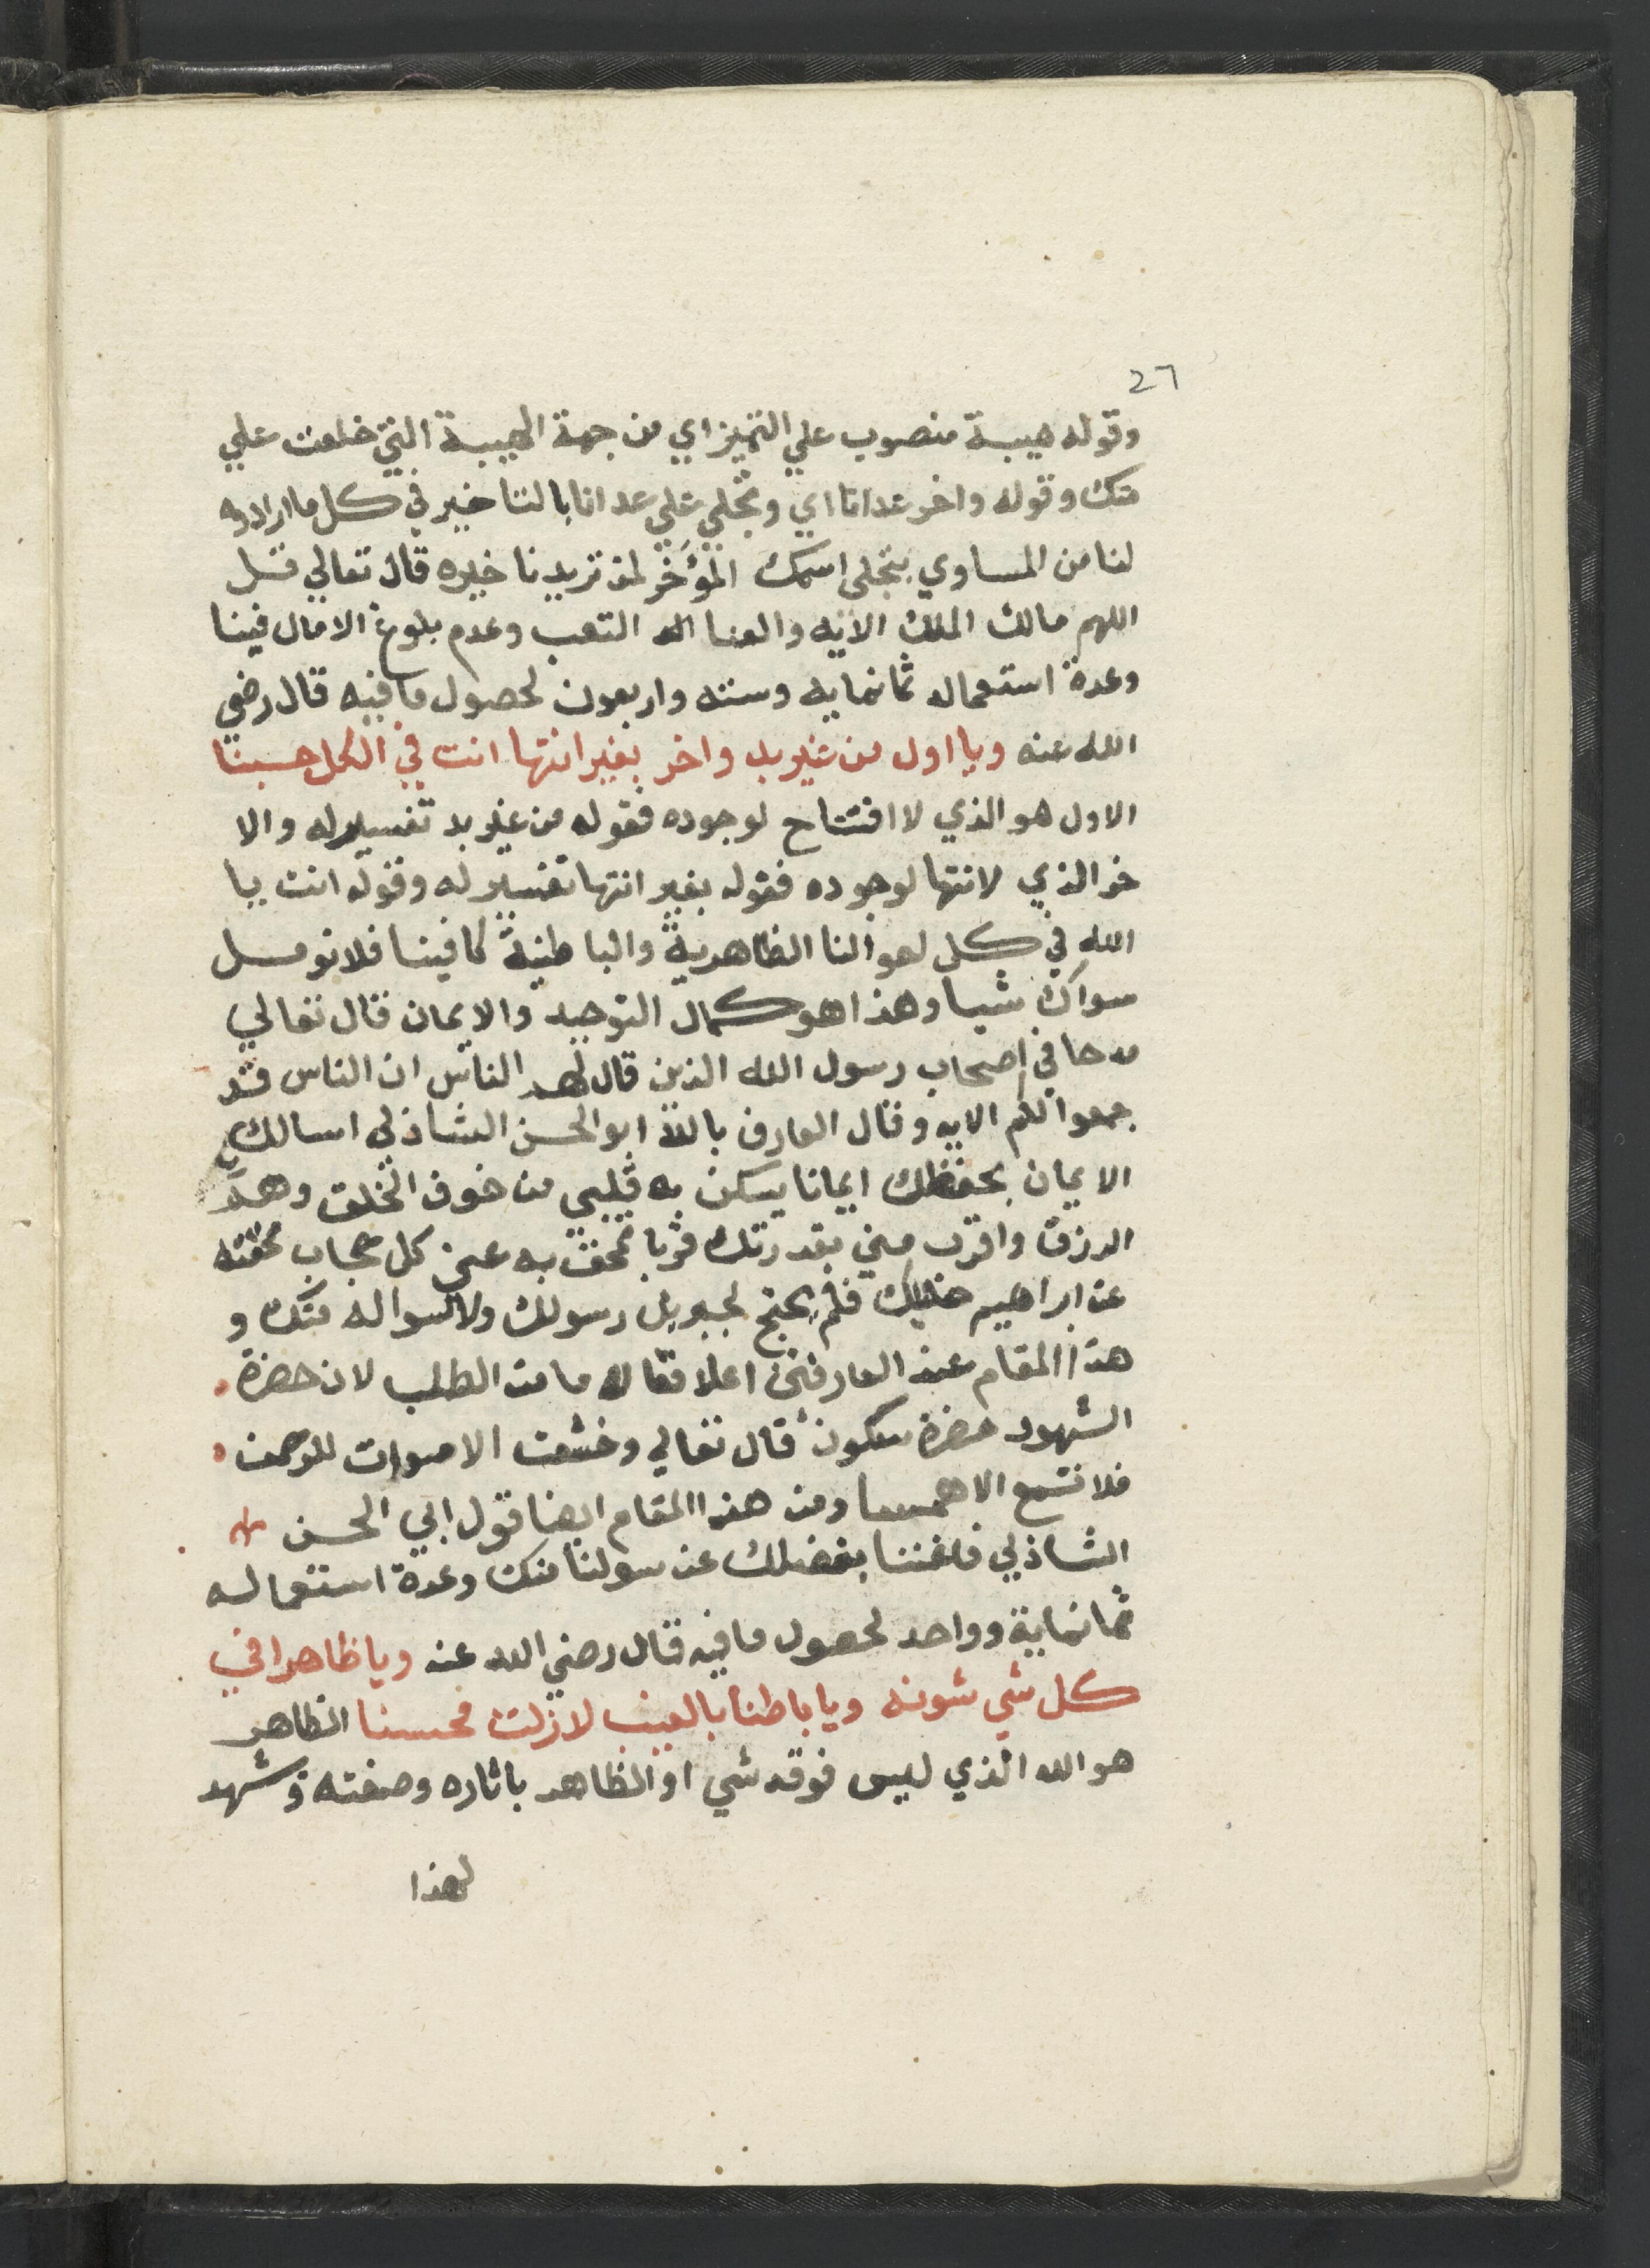 26
وقوله هيبة منصوب علي التميز اي من جهة الهيبة التي خلعت علي
منك وقوله واخر عدانا اي وتجلي علي عدانا بالتاخير في كل ما ارادوه
لنا من المساوي بتجلي اسمك المؤخر لمن تريد تاخيره قال تعالي قل
اللهم مالك الملك الايه والعنا التعب وعدم بلوغ الامال فينا
وعدة استعماله ثمانمايه وسته واربعون لحصول ما فيه قال رضي
الله عنه ويا اول من غير بد واخر بغير انتها انت في الكل حسبنا
الاول هو الذي لا افتتاح لوجوده فقوله من غير بد تفسير له والا
خر الذي لا انتها لوجوده فقوله بغير انتها تفسير له وقوله انت يا
الله في كل احوالنا الظاهرية والباطنية كافينا فلا نومل
سواك شيا وهذا هو كمال التوحيد والايمان قال تعالي
مدحا في اصحاب رسول الله الذين قال لهم الناس ان الناس قد
جمعوا لكم الايه وقال العارف بالله ابو الحسن الشاذلي اسالك
الايمان بحفظك ايمانا يسكن به قلبي من خوف الخلق وهم
الرزق واقرب مني بقدرتك قربا تمحق به عني كل حجاب محقته
عن ابراهيم خليلك فلم يحتج لجبريل رسولك ولا لسواله منك و
هذا المقام عند العارفين اعلا مقاما من الطلب لان حضرة
الشهود حضرة سكون قال تعالي وخشعت الاصوات للرحمن
فلا تسمع الا همسا ومن هذا المقام ايضا قول ابي الحسن
الشاذلي فاغننا بفضلك عن سولنا منك وعدة استعماله
ثمانماية وواحد لحصول ما فيه قال رضي الله عنه ويا ظاهرا في
كل شي شونه ويا باطنا بالغيب لا زلت محسنا الظاهر
هو الله الذي ليس فوقه شي او الظاهر باثاره وصفته ويشهد
لهذا